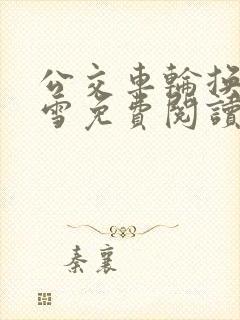 公交車輪換
雪免費閱讀
秦襄